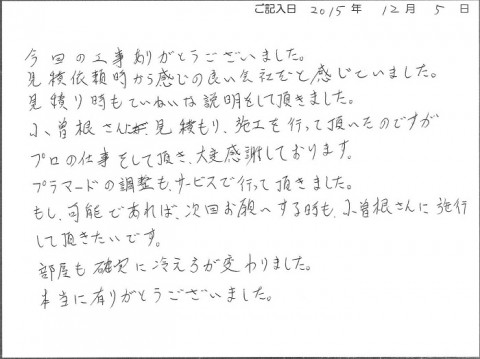 ご記入日 2015年 12月 5日
今回の工事ありがとうございました。
見積依頼時から感じの良い会社だと感じていました。
見積り時もていねいな説明をして頂きました。
小曽根さんが見積もり、施工を行って頂いたのですが
プロの仕事をして頂き、大変感謝しております。
プラマードの調整も、サービスで行って頂きました。
もし、可能であれば、次回お願いする時も、小曽根さんに施行
して頂きたいです。
部屋も確実に冷え方が変わりました。
本当に有りがとうございました。